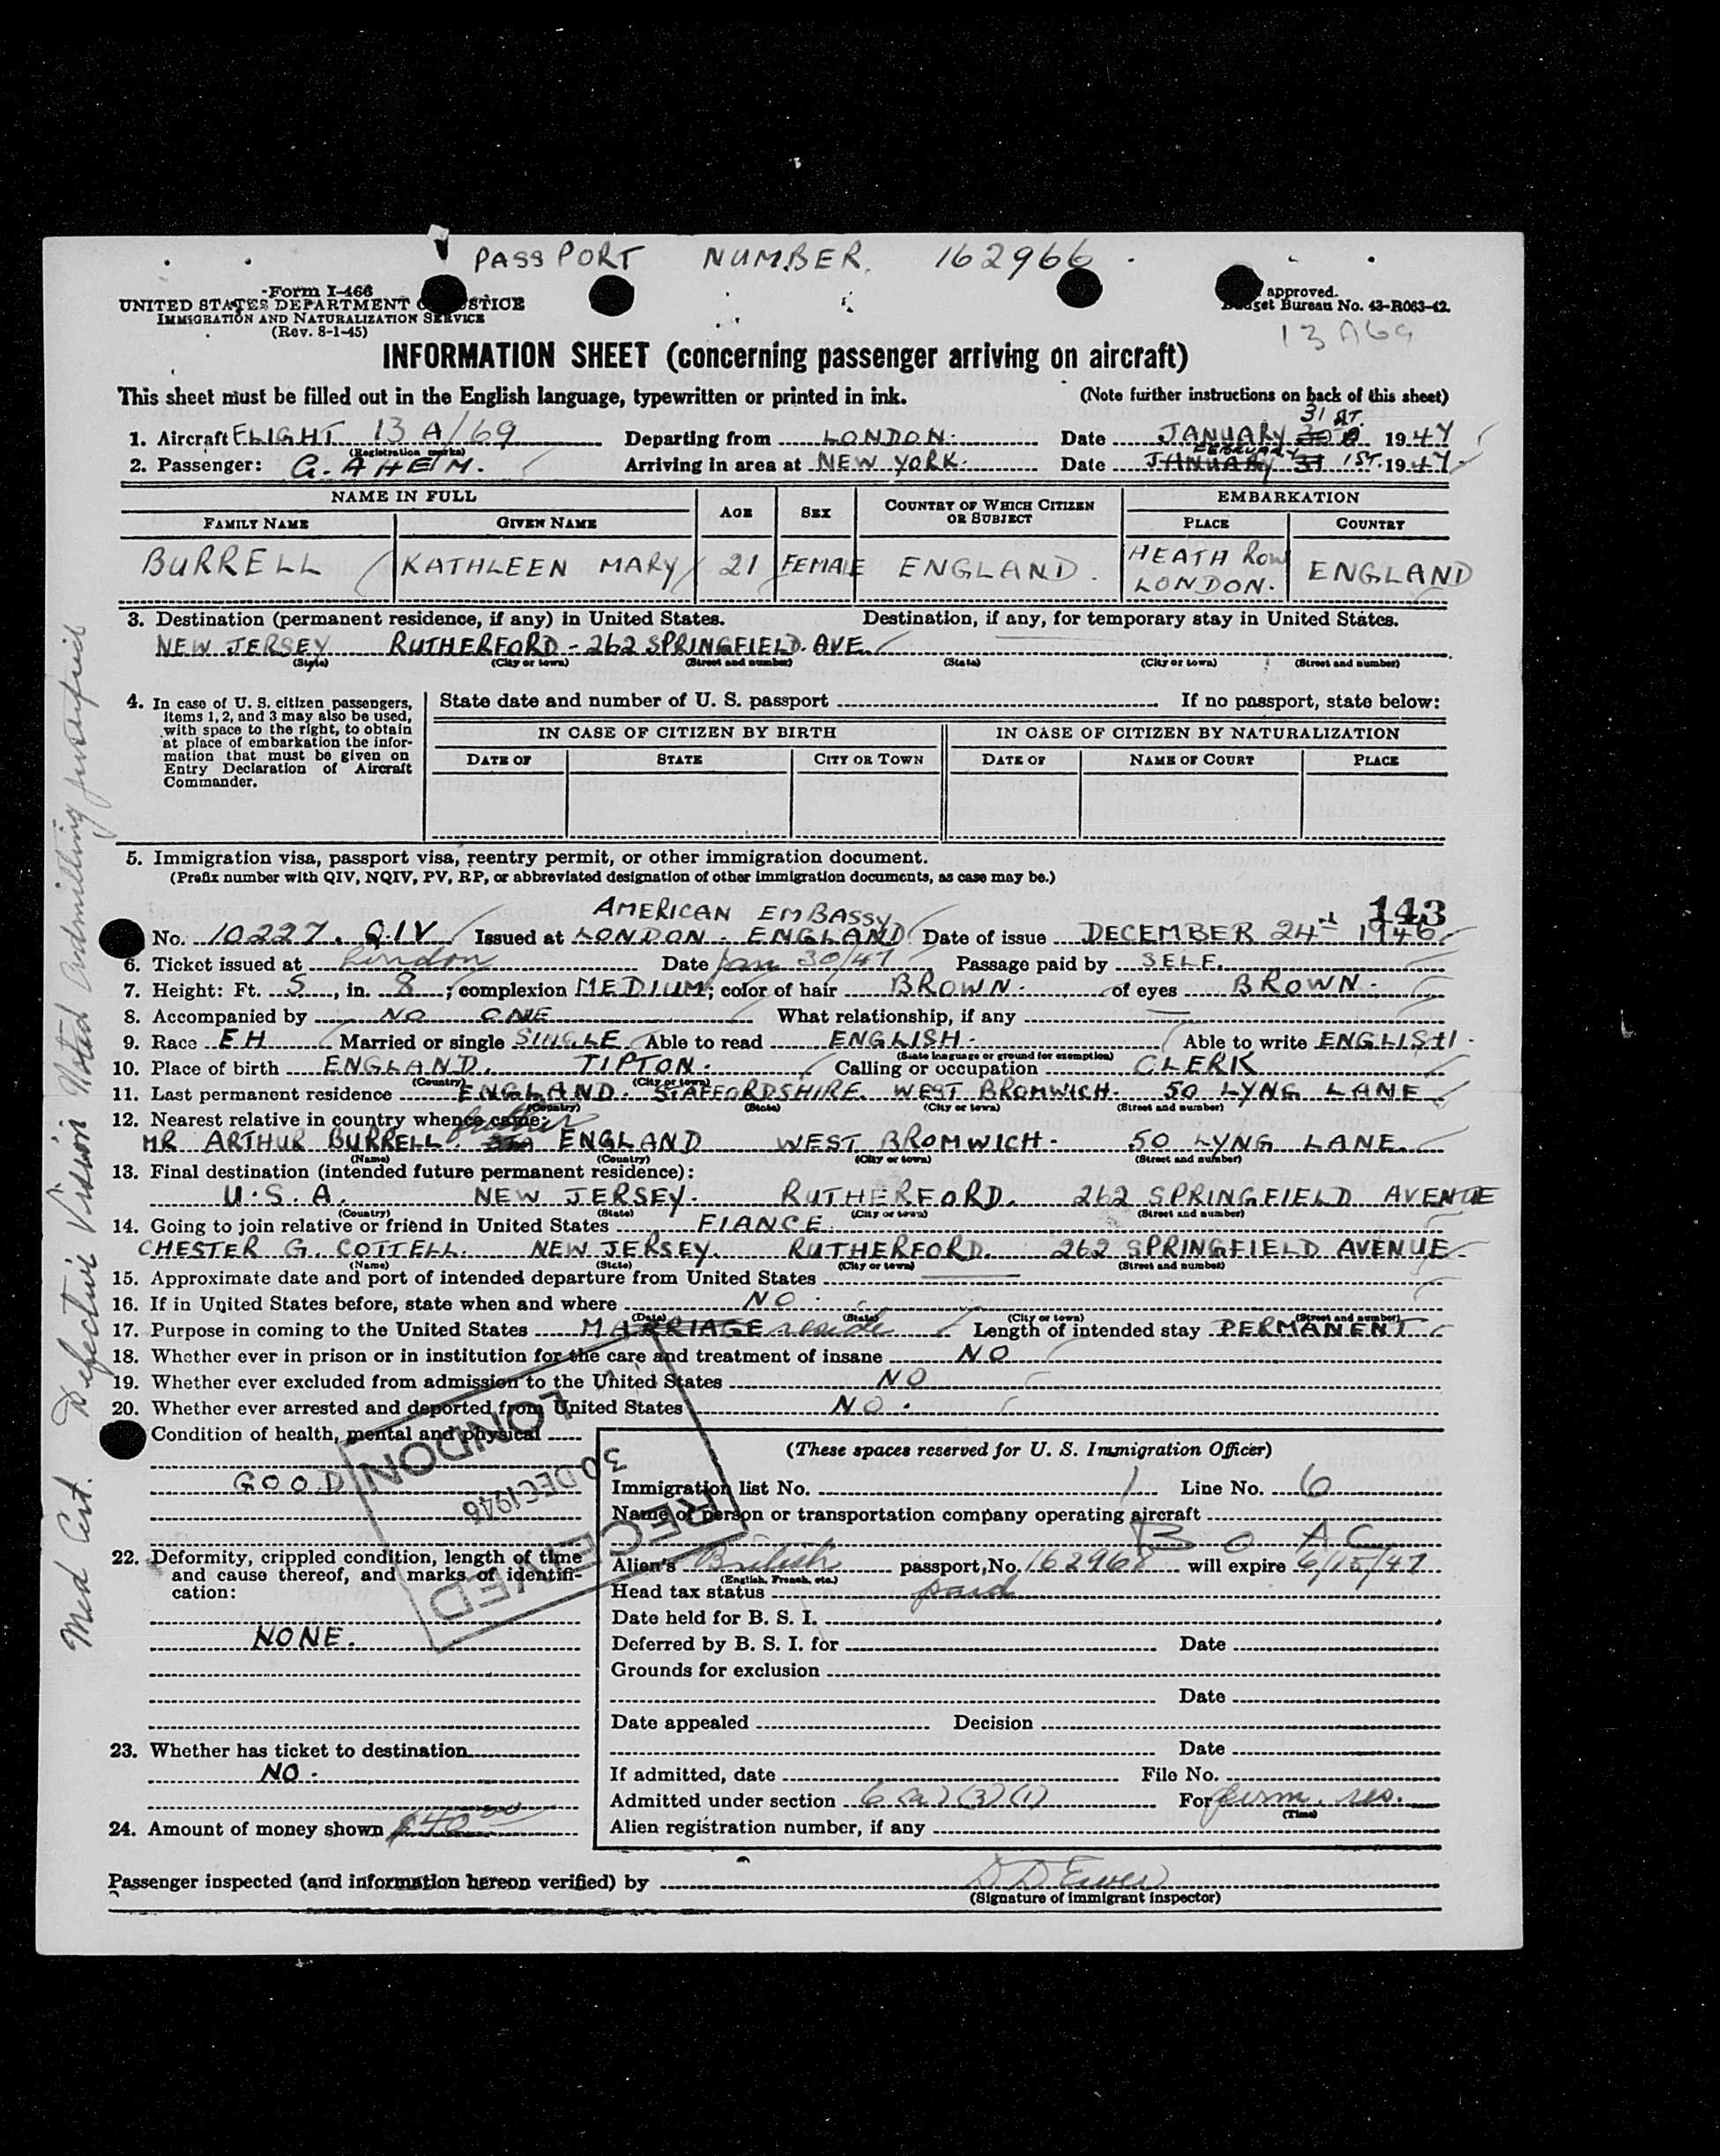 PASSPORT NUMBER. 162966
Form I-466
UNITED STATES DEPARTMENT OF JUSTICE
IMMIGRATION AND NATURALIZATION SERVICE
(Rev. 8-1-45)
approved.
Budget Bureau No. 43-R063-42.
13 A69
INFORMATION SHEET (concerning passenger arriving on aircraft)
This sheet must be filled out in the English language, typewritten or printed in ink. (Note further instructions on back of this sheet)
1. Aircraft FLIGHT 13 A/69 Departing from LONDON. Date JANUARY 31 ST. 1947
(Registration marks)
2. Passenger: G. AHEM. Arriving in area at NEW YORK. Date JANUARY 31 FEBRUARY 1ST. 1947
NAME IN FULL AGE SEX COUNTRY OF WHICH CITIZEN OR SUBJECT EMBARKATION
FAMILY NAME GIVEN NAME PLACE COUNTRY
BURRELL KATHLEEN MARY 21 FEMALE ENGLAND. HEATH ROW LONDON. ENGLAND
3. Destination (permanent residence, if any) in United States. Destination, if any, for temporary stay in United States.
NEW JERSEY RUTHERFORD - 262 SPRINGFIELD AVE.
(State) (City or town) (Street and number) (State) (City or town) (Street and number)
4. In case of U. S. citizen passengers, items 1, 2, and 3 may also be used, with space to the right, to obtain at place of embarkation the information that must be given on Entry Declaration of Aircraft Commander.
State date and number of U. S. passport If no passport, state below:
IN CASE OF CITIZEN BY BIRTH IN CASE OF CITIZEN BY NATURALIZATION
DATE OF STATE CITY OR TOWN DATE OF NAME OF COURT PLACE
5. Immigration visa, passport visa, reentry permit, or other immigration document.
(Prefix number with QIV, NQIV, PV, RP, or abbreviated designation of other immigration documents, as case may be.)
143
AMERICAN EMBASSY
No. 10227. Q.I.V Issued at LONDON - ENGLAND Date of issue DECEMBER 24 1946
6. Ticket issued at London Date Jan 30/47 Passage paid by SELF.
7. Height: Ft. 5, in. 8; complexion MEDIUM; color of hair BROWN. of eyes BROWN.
8. Accompanied by NO ONE What relationship, if any
9. Race EH Married or single SINGLE Able to read ENGLISH. Able to write ENGLISH.
(State language or ground for exemption)
10. Place of birth ENGLAND. TIPTON. Calling or occupation CLERK
(Country) (City or town)
11. Last permanent residence ENGLAND. STAFFORDSHIRE. WEST BROMWICH. 50 LYNG LANE
(Country) (State) (City or town) (Street and number)
12. Nearest relative in country whence came: father
MR ARTHUR BURRELL. ENGLAND WEST BROMWICH. 50 LYNG LANE.
(Name) (Country) (City or town) (Street and number)
13. Final destination (intended future permanent residence):
U.S.A. NEW JERSEY. RUTHERFORD. 262 SPRINGFIELD AVENUE
(Country) (State) (City or town) (Street and number)
14. Going to join relative or friend in United States FIANCE.
CHESTER G. COTTELL. NEW JERSEY. RUTHERFORD. 262 SPRINGFIELD AVENUE.
(Name) (State) (City or town) (Street and number)
15. Approximate date and port of intended departure from United States
16. If in United States before, state when and where NO.
(Date) (State) (City or town) (Street and number)
17. Purpose in coming to the United States MARRIAGE reside Length of intended stay PERMANENT
18. Whether ever in prison or in institution for the care and treatment of insane NO
19. Whether ever excluded from admission to the United States NO
20. Whether ever arrested and deported from United States NO.
Condition of health, mental and physical
GOOD
22. Deformity, crippled condition, length of time and cause thereof, and marks of identification:
NONE.
23. Whether has ticket to destination
NO.
24. Amount of money shown $40.00
(These spaces reserved for U. S. Immigration Officer)
Immigration list No. 1 Line No. 6
Name of person or transportation company operating aircraft
B O A C
Alien's British passport, No. 162966 will expire 6/15/47
(English, French, etc.)
Head tax status paid
Date held for B. S. I.
Deferred by B. S. I. for Date
Grounds for exclusion
Date
Date appealed Decision
Date
If admitted, date File No.
Admitted under section 6(a)(3)(1) For perm. res.
(Time)
Alien registration number, if any
Passenger inspected (and information hereon verified) by
(Signature of immigrant inspector)
RECEIVED
30 DEC 1946
LONDON
Med Cert. Defective Vision Noted Admitting